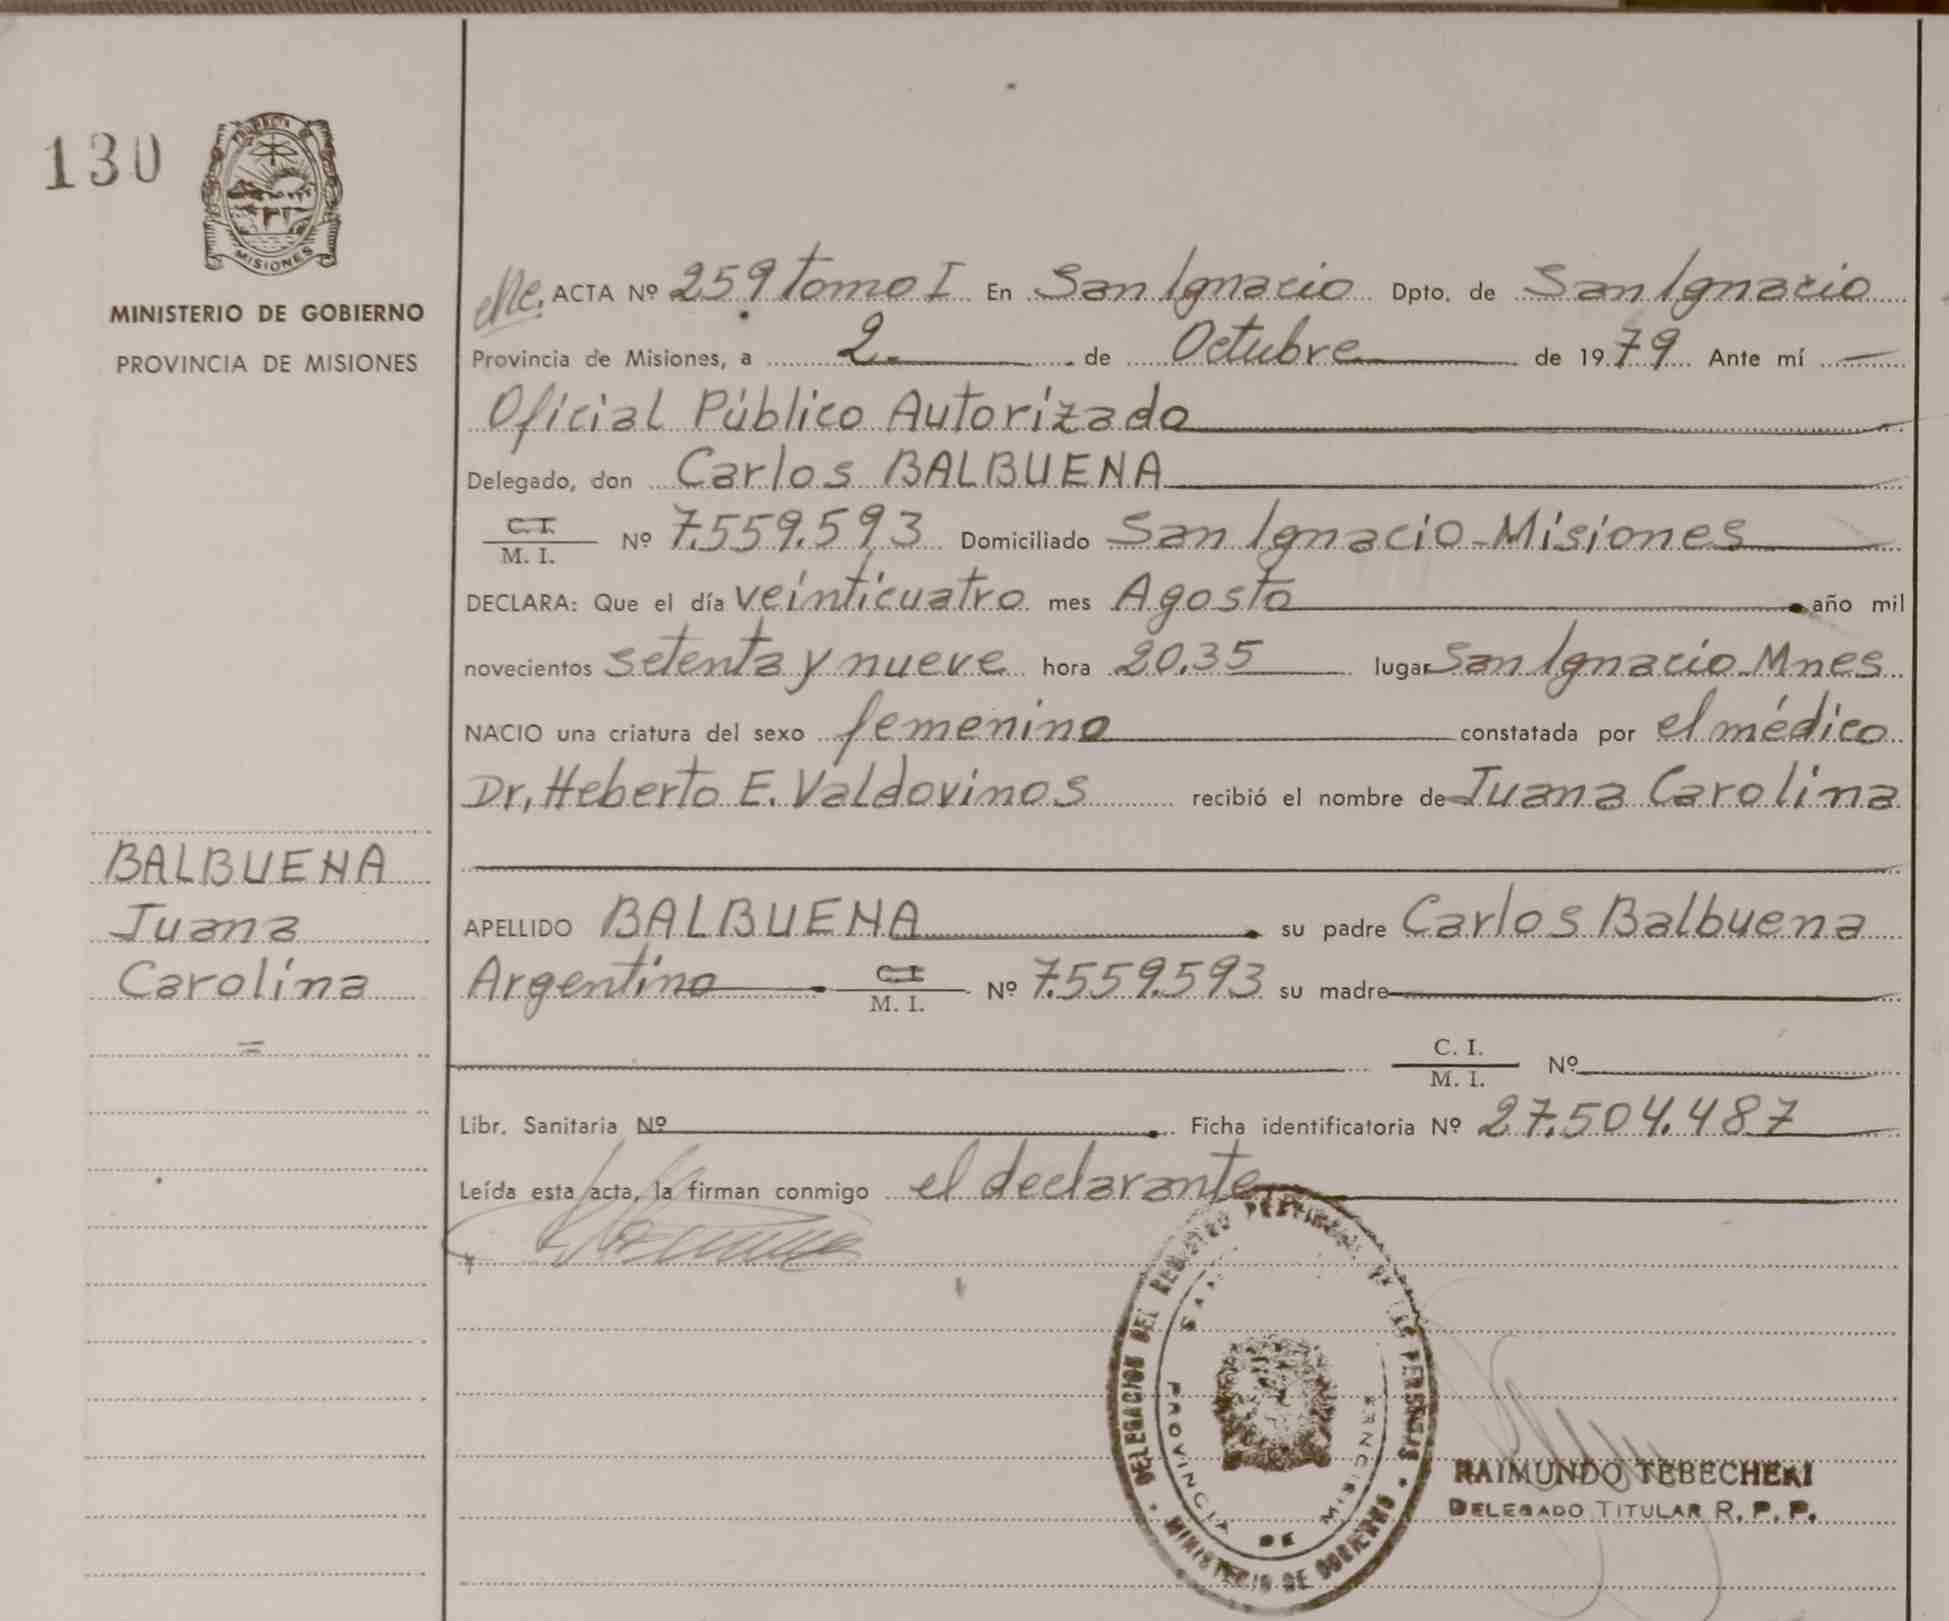 130
MISIONES
MINISTERIO DE GOBIERNO
PROVINCIA DE MISIONES
BALBUENA
Juana
Carolina
=
ACTA Nº 259 tomo I En San Ignacio Dpto. de San Ignacio
Provincia de Misiones, a 2 de Octubre de 1979 Ante mí
Oficial Público Autorizado
Delegado, don Carlos BALBUENA
C.I.
M. I. Nº 7.559.593 Domiciliado San Ignacio-Misiones
DECLARA: Que el día veinticuatro mes Agosto año mil
novecientos setenta y nueve hora 20.35 lugar San Ignacio-Mnes
NACIO una criatura del sexo femenino constatada por el médico
Dr. Heberto E. Valdovinos recibió el nombre de Juana Carolina
APELLIDO BALBUENA su padre Carlos Balbuena
Argentino C.I.
M. I. Nº 7.559.593 su madre
C. I.
M. I. Nº
Libr. Sanitaria Nº Ficha identificatoria Nº 27.504.487
Leída esta acta, la firman conmigo el declarante
DELEGACION DEL REGISTRO PROVINCIAL DE LAS PERSONAS
MINISTERIO DE GOBIERNO
PROVINCIA DE MISIONES
RAIMUNDO TEBECHERI
DELEGADO TITULAR R. P. P.